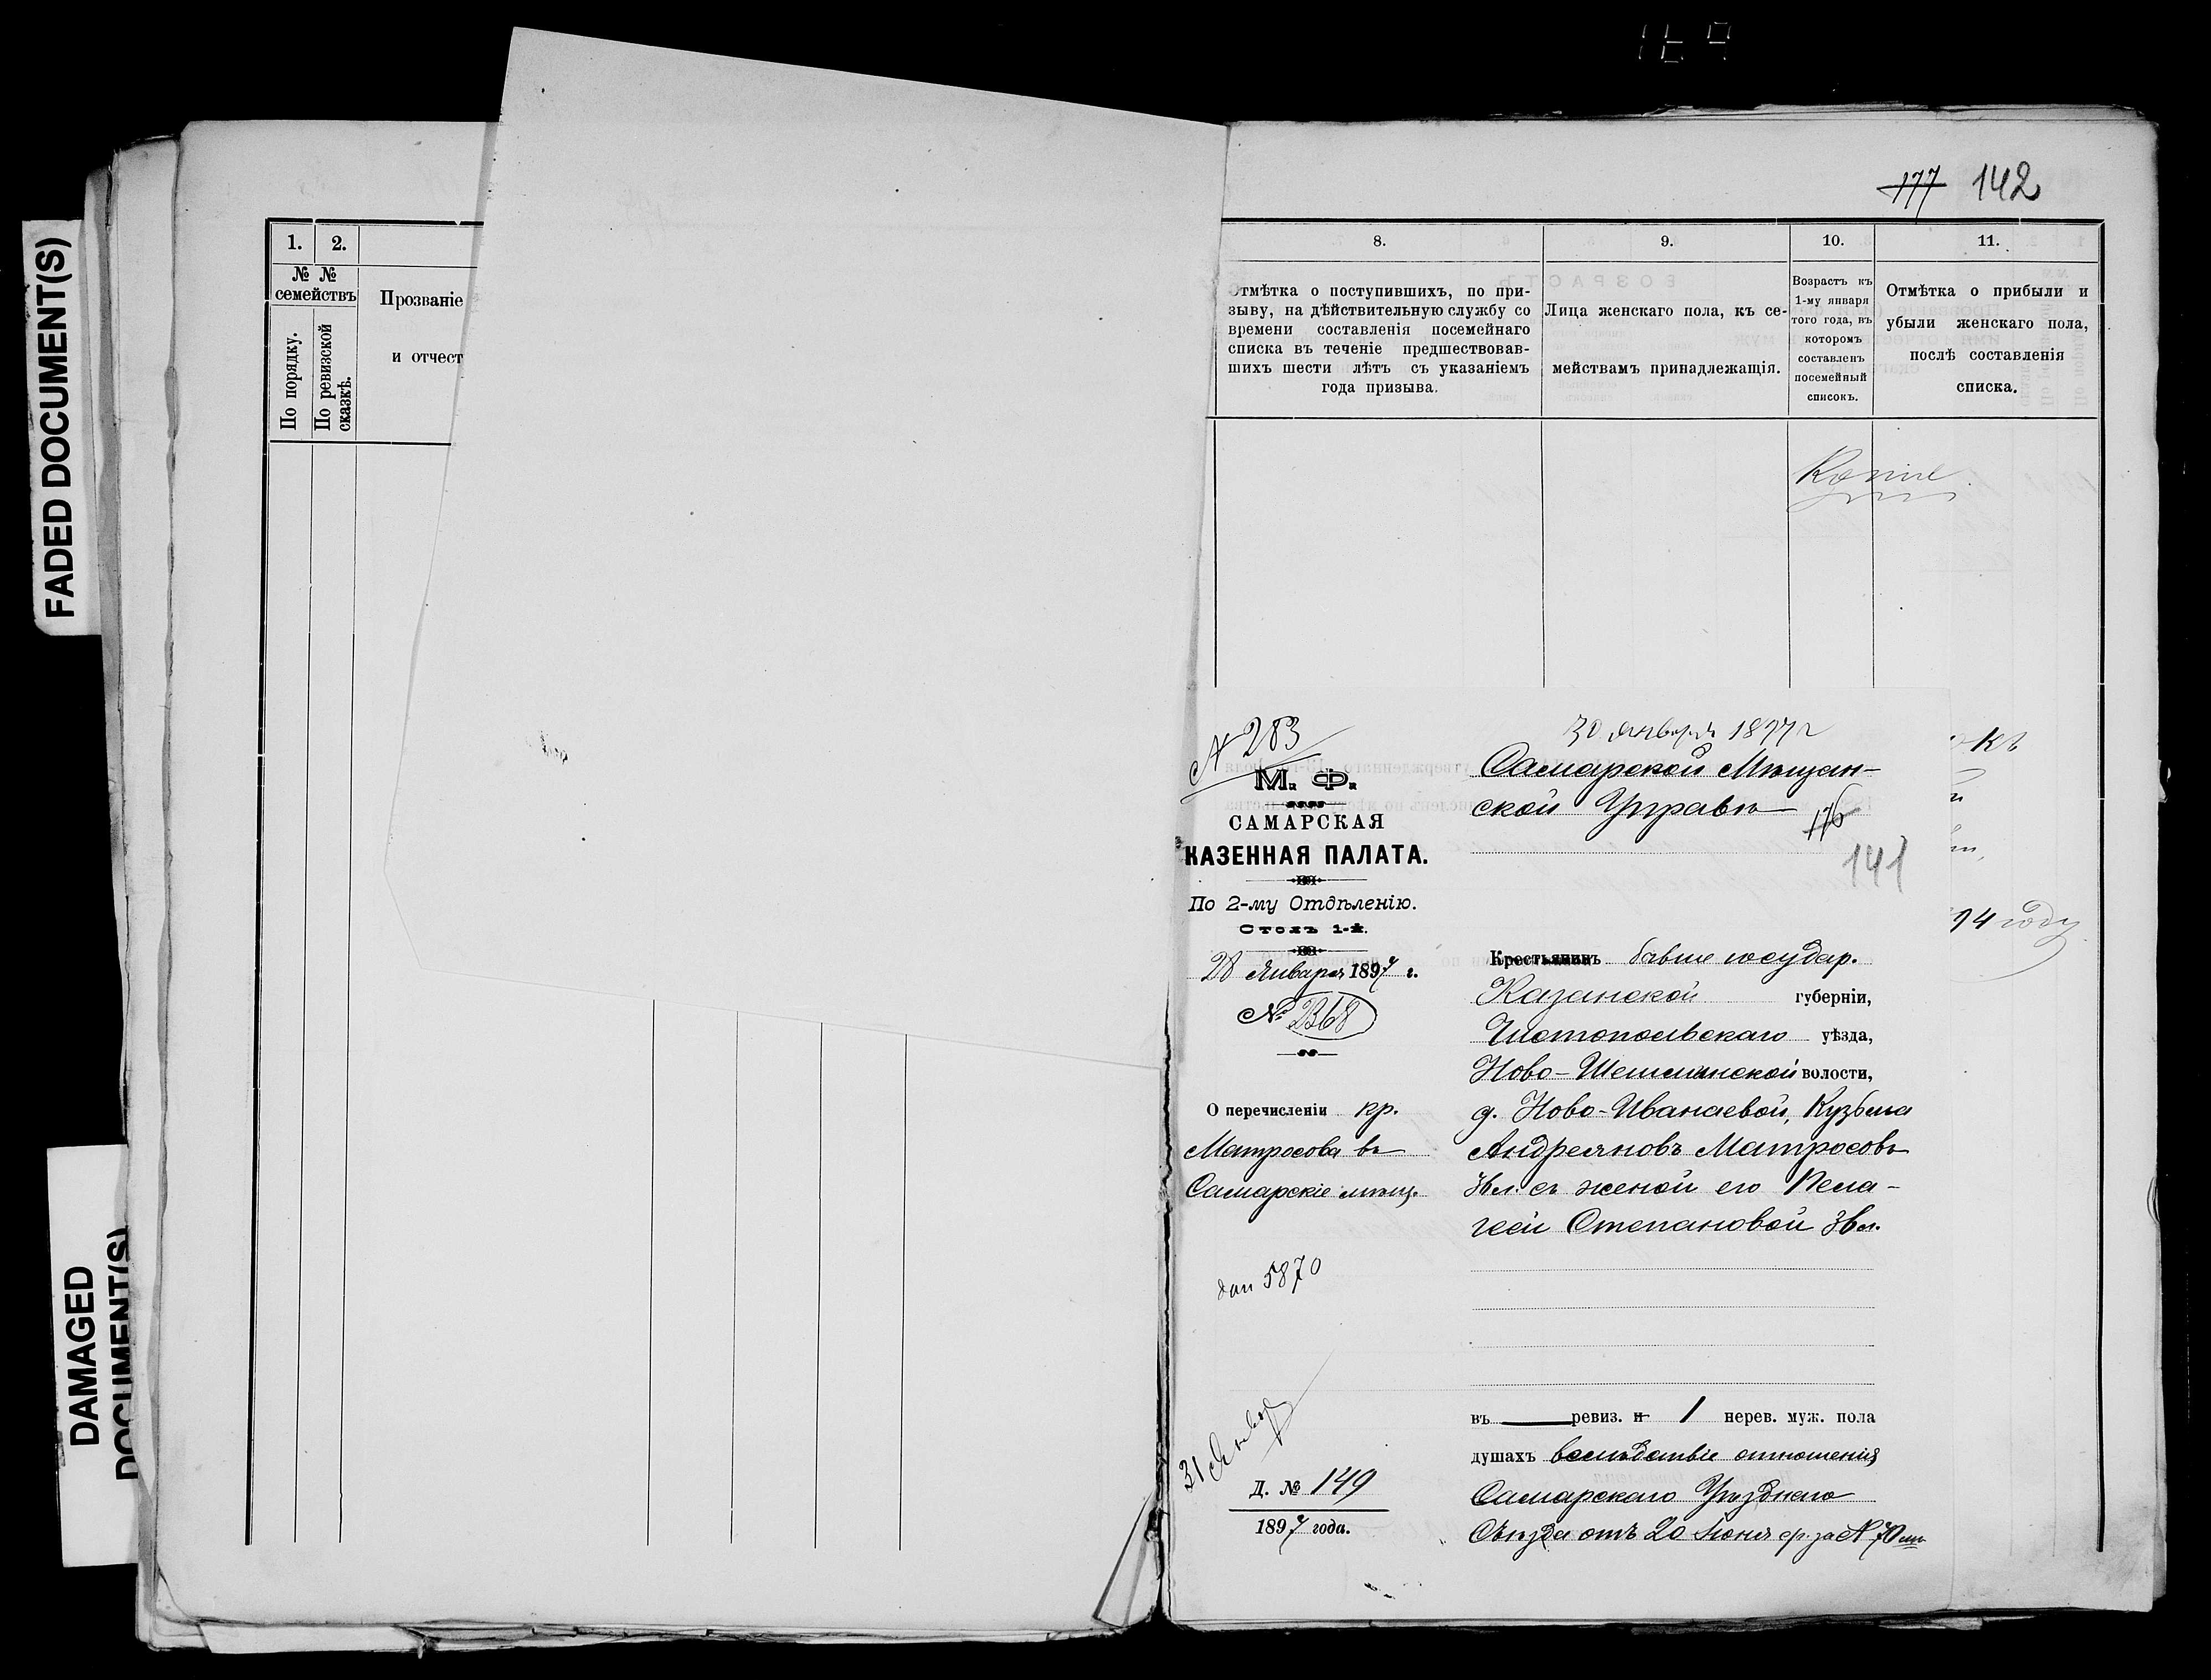 FADED DOCUMENT(S)
DAMAGED
DOCUMENT(S)
1.
2.
№ №
семействъ
По порядку.
По ревизской
сказкѣ.
Прозваніе
и отчест
177 142
8.
9.
10.
11.
Отмѣтка о поступившихъ, по при-
зыву, на дѣйствительную службу со
времени составленія посемейнаго
списка въ теченіе предшествовав-
шихъ шести лѣтъ съ указаніемъ
года призыва.
Лица женскаго пола, къ се-
мействамъ принадлежащія.
Возрастъ къ
1-му января
того года, въ
которомъ
составленъ
посемейный
списокъ.
Отмѣтка о прибыли и
убыли женскаго пола,
послѣ составленія
списка.
№ 283
М. Ф.
САМАРСКАЯ
КАЗЕННАЯ ПАЛАТА.
По 2-му Отдѣленію.
Столъ 1-й.
28 Января 1897 г.
№ 2368
О перечисленіи кр.
Матросова въ
Самарскіе мѣщ.
5870
31 Январ
Д. № 149
1897 года.
30 января 1897 г
Самарской Мѣщан-
ской Управѣ
176
141
Крестьянинъ бывш государ.
Казанской губерніи,
Чистопольскаго уѣзда,
Ново-Шешминской волости,
д. Ново-Иванаевой, Кузьма
Андреяновъ Матросовъ
36 л. съ женой его Пела-
геей Степановой 36 л.
въ ревиз. и 1 нерев. муж. пола
душахъ вслѣдствіе отношенія
Самарскаго Уѣзднаго
Съѣзда отъ 20 Июня ср. за № 70
къ
94 году